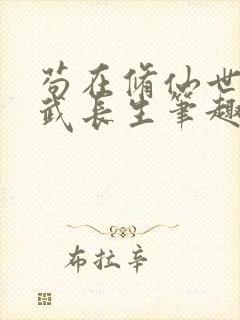 苟在脩仙世
武长生筆趣
布拉辛